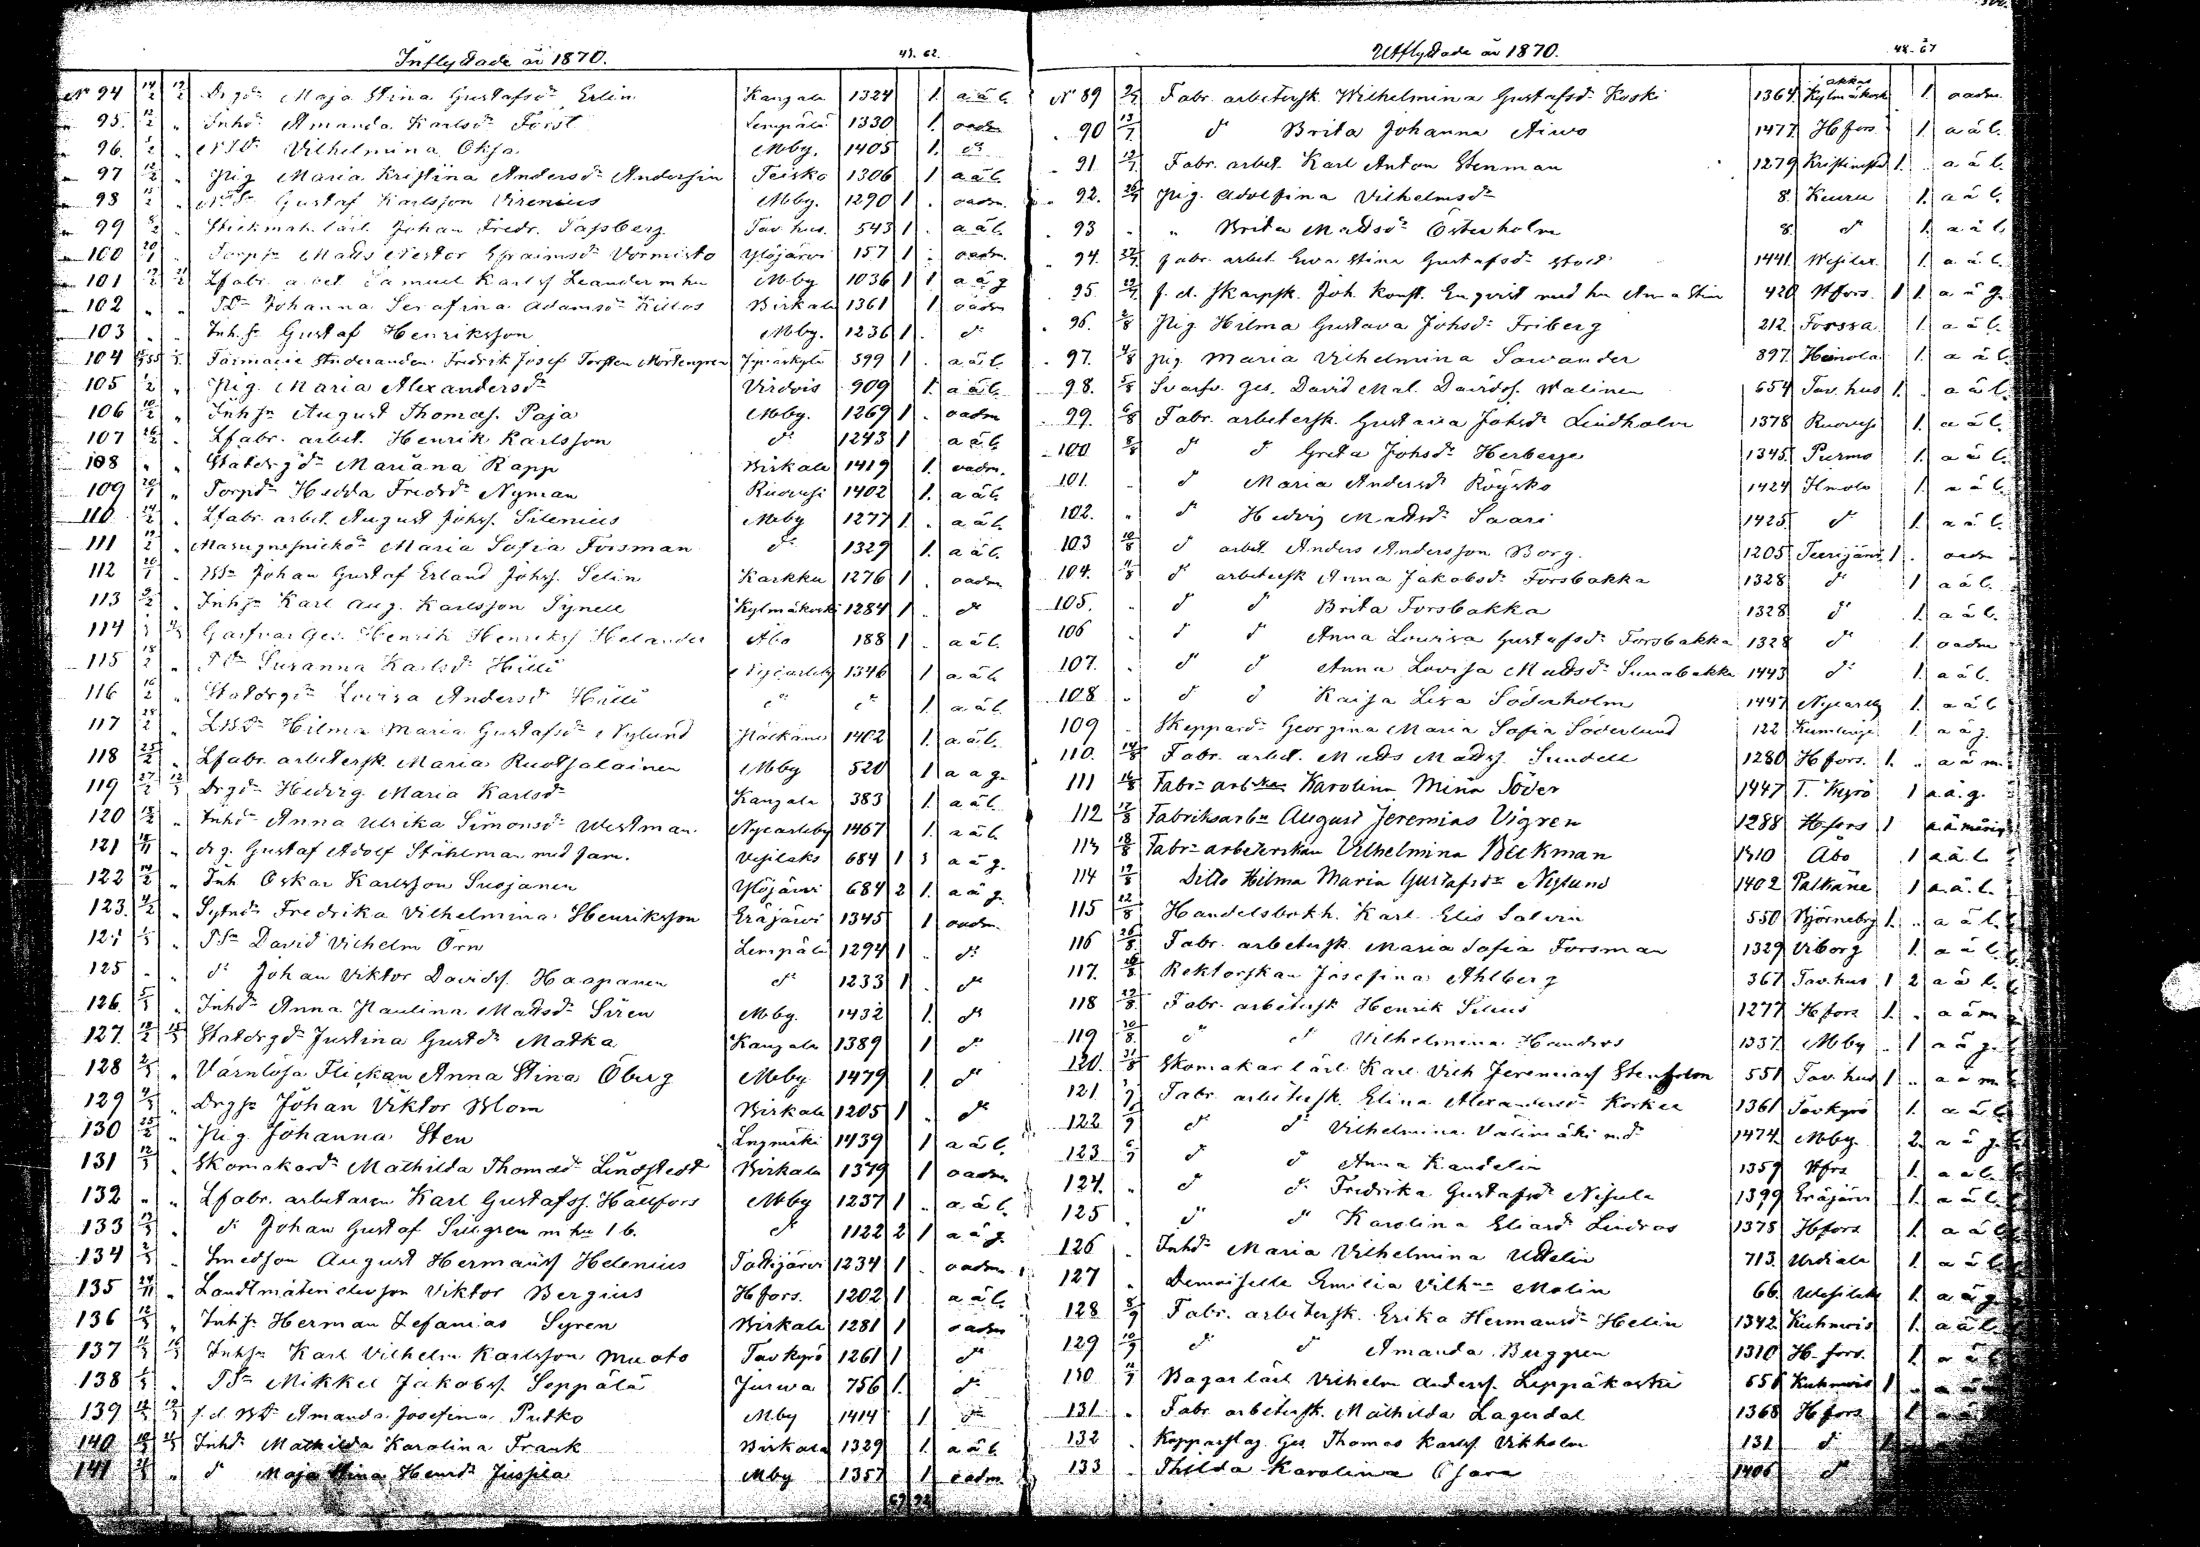 Inflyttade år 1870. 49. 62.
No 94 14/2 19/2 Drgdr Maja Stina Gustafsdr Erlin Kangala 1324 1. a ä l.
95. 12/2 " Inhdr Amanda Karlsdr Forst Lempälä 1330 1. oadm
96. " Vilhelmina Mby. 1405 1. do
97 12/2 " Pig Maria Kristina Andersdr Andersin Teisko 1306 1 a ä l.
98 " Gustaf Karlsson Virenius Mby. 1290 1 . oadm.
99 " Johan Fredr. Tav.hus. 543 1 . a ä l.
100 20/1 . Mats Nestor Vormisto Ylöjärvi 157 1 . oadm.
101 Lfabr. arbet. Samuel Karlsf Leander m hu Mby 1036 1 1 a ä g
102 " " Johanna Serafina Adamsdr Birkala 1361 1 oadm
103 . . Inh.s. Gustaf Henriksson Mby. 1236 1 . do
104 Farmacie Studeranden Fredrik Josef Torsten Mörtengren Jyväskylä 599 1 . a ä l.
105 1/2 " Pig. Maria Alexandersdr Virdois 909 1. a ä l.
106 10/2 " Inhsn August Thomasf. Paja Mby. 1269 1 . oadm
107 26/2 . Lfabr. arbet. Henrik Karlsson do 1243 1 a ä l.
108 " " Statdrgdr Mariana Rapp Birkala 1419 1. oadm.
109 20/1 " Torpdr Hedda Fredrdr Nyman Ruovesi 1402 1. a ä l.
110 14/2 . Lfabr. arbet. August Johsf. Silenius Mby 1277 1. . a ä l.
111 19/2 " Maria Sofia Forsman do 1329 1. a ä l.
112 20/1 . Johan Gustaf Erland Johsf. Selin Karkku 1276 1 . oadm
113 9/2 . Inhsn Karl Aug. Karlsson Tynell Kylmäkoski 1284 1 . do
114 Garfvar Ges. Henrik Henriksf Helander Åbo 188 1 . a ä l.
115 18/2 " Susanna Karlsdr Hilli Nycarleby 1346 1 a ä l.
116 16/2 " Statdrgdr Lovisa Andersdr Hilli do do 1. a ä l.
117 28/2 . Hilma Maria Gustafsdr Nylund Pälkäne 1402 1. a ä l.
118 25/2 . Lfabr. arbetersk. Maria Ruotsalainen Mby 520 1 a a g.
119 27/2 12/3 Drgdr Hedvig Maria Karlsdr Kangala 383 1. a ä l.
120 18/2 " Inhdr Anna Ulrika Simonsdr Westman Nycarleby 1467 1. a ä l.
121 " drg. Gustaf Adolf Ståhlman med fam. Vesilaks 684 1 3 a ä g.
122 14/2 " Inh Oskar Karlsson Suojanen Ylöjärvi 684 2 1. a ä g.
123. 4/2 " Sytndr Fredrika Vilhelmina Henriksson Eräjärvi 1345 1 oadm.
124 " David Vilhelm Örn Lempälä 1294 1 .. do
125 . " do Johan Viktor Davidsf. Haapanen do 1233 1 . do
126. 5/3 " Inhdr Anna Paulina Matsdr Siren Mby. 1432 1. do
127. Statdrgdr Justina Gustdr Matka Kangala 1389 1 do
128 2/3 " Värnlösa Flickan Anna Stina Öberg Mby 1479 1. do
129 4/3 " Drgsn Johan Viktor Blom Birkala 1205 1 . do
130 25/2 " Pig. Johanna Sten Lngmäki 1439 1 a ä l.
131 12/3 " Skomakardr Mathilda Thomasdr Lindstedt Birkala 1379 1 oadm
132 " " Lfabr. arbetaren Karl Gustafsf. Hällfors Mby 1237 1 .. a ä l.
133 " do Johan Gustaf Sirgren m hu 1 b. do 1122 2 1 a ä g.
134 2/3 " Smedson August Hermansf Helenius Tottijärvi 1234 1 . oadm
135 24/11 " Landtmäterielevson Viktor Bergius Hfors. 1202 1 a ä l.
136 12/3 " Inhsn Herman Zefanias Syren Birkala 1281 1 oadm
137 Inhsn Karl Vilhelm Karlsson Muoto Tavkyrö 1261 1 do
138 1/3 " Mikkel Jakobsf. Seppälä Jurwa 756 1. do
139 f.d. Amanda Josefina Putko Mby 1414 1 do
140 Inhdr Mathilda Karolina Frank Birkala 1329 1. a ä l.
141 " do Maja Stina Henrdr Jussila Mby 1357 1 oadm.
Utflyttade år 1870. 48. 67
No 89 Fabr. arbetersk. Wilhelmina Gustafsdr Koski 1364 Kylmäkoski 1. oadm.
90 13/7 do Brita Johanna Aiwo 1477 Hfors. 1. a ä l.
91 Fabr. arbet. Karl Anton Stenman 1279 Kristinestad 1. . a ä l.
92. Pig. Adolfina Vilhelmsdr 8. Kuru 1. a ä l.
93 . " Brita Matsdr Österholm 8. do 1. a ä l.
94. 27/7 fabr. arbet. Ewa Stina Gustafsdr 1441 Wesilax. 1. a ä l.
95 f. d. Skarpsk. Joh. Konst. Enqvist med hu Anna Stina 420 Hfors. 1 1. a ä g.
96. 2/8 Pig Hilma Gustava Johsdr Friberg 212. Forssa 1. a ä l.
97. 4/8 pig. Maria Vilhelmina Sawander 897. Heinola 1. a ä l.
98. 5/8 Svarfv. ges. David Mal. Davidsf. Walinen 654 Tav.hus 1. . a ä l.
99. 6/8 Fabr. arbetersk. Gustava Johsdr Lindholm 1378 Ruovesi 1. a ä l.
100 8/8 do do Greta Johsdr Herberge 1345. Purmo 1. a ä l.
101. . do Maria Andersdr Röysko 1424 Ilmola 1. a ä l.
102. . do Hedvig Matsdr Saari 1425 do 1. a ä l.
103 10/8 do arbet. Anders Andersson Borg. 1205 Teerijärvi 1 . oadm
104. do arbetersk Anna Jakobsdr Forsbakka 1328 do 1 a ä l.
105. . do do Brita Forsbakka 1328 do 1. a ä l.
106 . do do Anna Lovisa Gustafsdr Forsbakka 1328 do 1. oadm
107. . do do Anna Lovisa Matsdr Sunabakka 1443 do 1. a ä l.
108 . do do Kaisa Lisa Söderholm 1447 Nycarleby 1. a ä l
109 . Skeppardr Georgina Maria Sofia Söderlund 122 Kumlinge 1. a ä g.
110. 14/8 Fabr. arbet. Mats Matsf. Sundell 1280 Hfors. 1. .. a ä m.
111 16/8 Fabr= arbskan Karolina Mina Söder 1447 T. Kyrö 1 a.ä.g.
112 17/8 Fabriksarbn August Jeremias Vigren 1288 Hfors 1 a.ä.mörig
113 18/8 Fabr= arbeterskan Vilhelmina Beckman 1310 Åbo 1 a.ä.l.
114 19/8 Ditto Hilma Maria Gustafsdr Nylund 1402 Palkäne 1 a.ä.l.
115 22/8 Handelsbokh. Karl Elis Salvin 550 Björneborg 1. .. a ä l.
116 26/8 Fabr. arbetersk. Maria Sofia Forsman 1329 Viborg 1. a ä l.
117. Rektorskan Josefina Ahlberg 367 Tav.hus 1 2 a ä l.
118 29/8 Fabr. arbetersk Henrik Silius 1277 Hfors 1. . a ä m
119 30/8 do do Vilhelmina 1337. Mby .. 1 a ä g.
120. 31/8 Skomakar lärl. Karl Vilh Jeremiasf 551 Tav.hus 1 .. a ä m
121 1/9 Fabr. arbetersk. Elina Alexandersdr Korkee 1361 Tavkyrö 1. a ä l.
122 do do Vilhelmina Välimäki m.d. 1474 Mby. 2. a ä g.
123 6/9 do do Anna Kandelin 1359 Hfrs 1. a ä l.
124. . do do Fredrika Gustafsdr Nisula 1399 Eräjärvi 1. a ä l.
125 . do do Karolina Eliasdr Lindroos 1378 Hfors 1. a ä l
126 . Inhdr Maria Vilhelmina Udelin 713. Urdiala 1. a ä l
127 . Demoiselle Emilia Vilhna Molin 66. Wesilaks 1. a ä g
128 8/9 Fabr. arbetersk. Erika Hermansdr Helin 1342. Kuhmois 1. a ä l.
129 10/9 do do Amanda Berggren 1310 H-fors. 1. a ä
130 Bagar lärl Vilhelm Andersf. Leppäkoski 651 Kuhmois 1 .. a ä
131 . Fabr. arbetersk. Mathilda Lagerdal 1368 Hfors 1 a ä
132 . Kopparslag. Ges. Thomas Karlsf. Vikholm 131 do 1.
133 . Thilda Karolina 1406 do